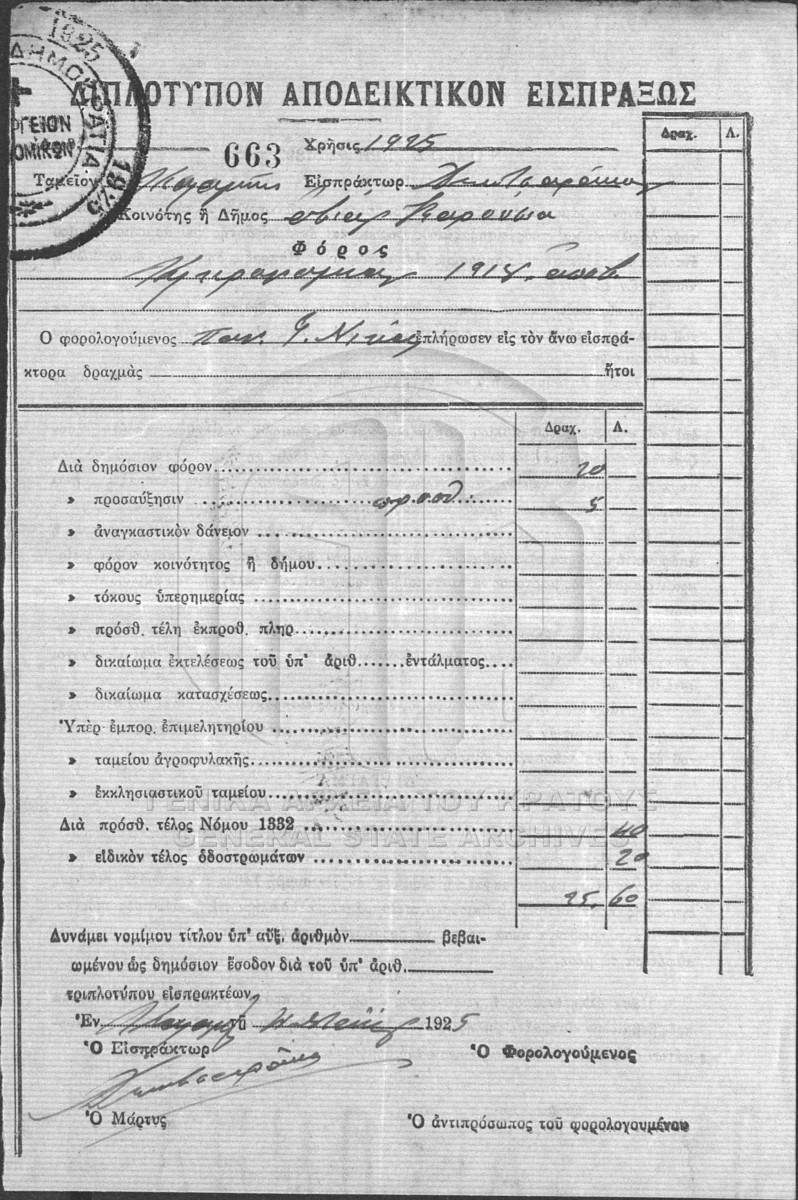 1925
ΔΗΜΟΚΡΑΤΙΑ
1925
ΔΙΠΛΟΤΥΠΟΝ ΑΠΟΔΕΙΚΤΙΚΟΝ ΕΙΣΠΡΑΞΩΣ
663 Χρῆσις 1925
Δραχ. Λ.
Ταμεῖον Εἰσπράκτωρ
Κοινότης ἢ Δῆμος
Φόρος
191
Ὁ φορολογούμενος ἐπλήρωσεν εἰς τὸν ἄνω εἰσπρά-
κτορα δραχμὰς ἤτοι
Δραχ. Λ.
Διὰ δημόσιον φόρον 20
» προσαύξησιν 5
» ἀναγκαστικὸν δάνειον
» φόρον κοινότητος ἢ δήμου
» τόκους ὑπερημερίας
» πρόσθ. τέλη ἐκπροθ. πληρ.
» δικαίωμα ἐκτελέσεως τοῦ ὑπ' ἀριθ. ἐντάλματος
» δικαίωμα κατασχέσεως
Ὑπὲρ ἐμπορ. ἐπιμελητηρίου
» ταμείου ἀγροφυλακῆς
» ἐκκλησιαστικοῦ ταμείου
ΓΕΝΙΚΑ ΑΡΧΕΙΑ ΤΟΥ ΚΡΑΤΟΥΣ
Διὰ πρόσθ. τέλος Νόμου 1332 40
GENERAL STATE ARCHIVES
» εἰδικὸν τέλος ὁδοστρωμάτων 20
25. 60
Δυνάμει νομίμου τίτλου ὑπ' αὔξ. ἀριθμὸν βεβαι-
ωμένου ὡς δημόσιον ἔσοδον διὰ τοῦ ὑπ' ἀριθ.
τριπλοτύπου εἰσπρακτέων.
Ἐν τῇ 1925
Ὁ Εἰσπράκτωρ Ὁ Φορολογούμενος
Ὁ Μάρτυς Ὁ ἀντιπρόσωπος τοῦ φορολογουμένου